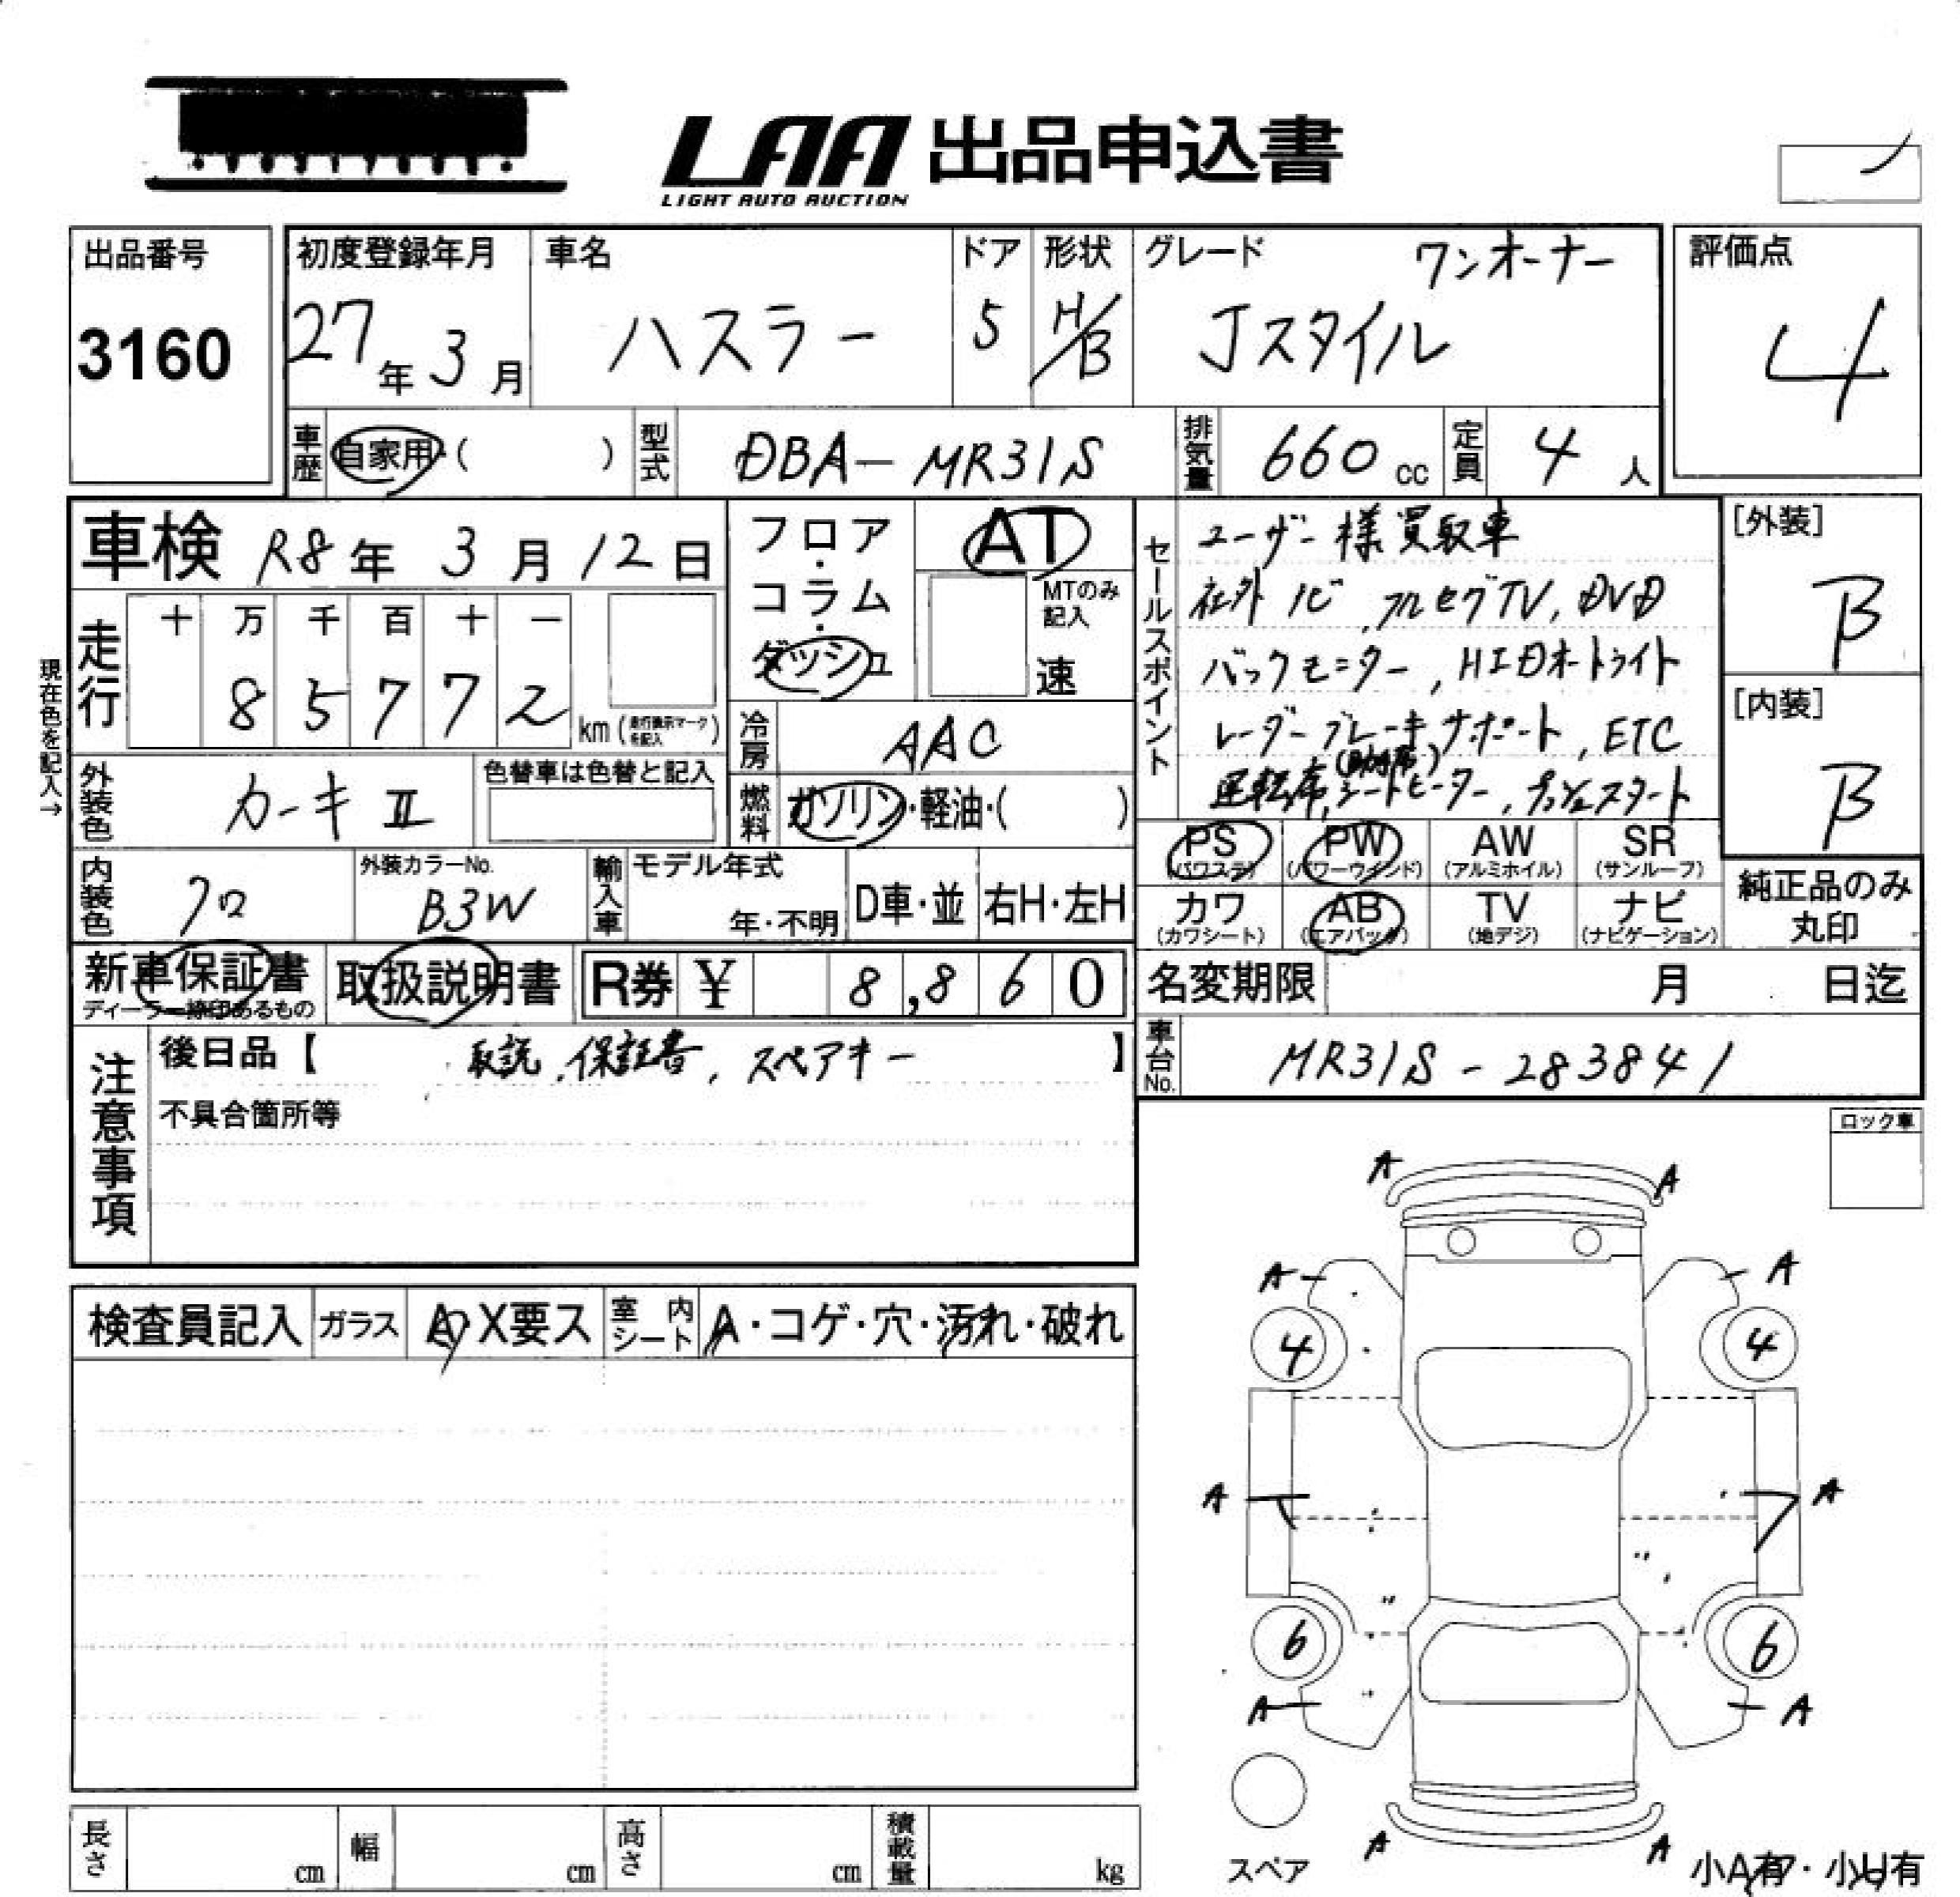 LAA 出品申込書
LIGHT AUTO AUCTION
出品番号
3160
初度登録年月
27年3月
車名
ハスラー
ドア
5
形状
H/B
グレード
ワンオーナー
Jスタイル
評価点
4
車歴
自家用・( )
型式
DBA-MR31S
排気量
660cc
定員
4人
車検 R8年3月12日
フロア・コラム・ダッシュ
AT
MTのみ記入
速
セールスポイント
ユーザー様買取車
社外ナビ,フルセグTV,DVD
バックモニター,HIDオートライト
レーダーブレーキサポート,ETC
(助手席)
運転席,シートヒーター,プッシュスタート
[外装]
B
[内装]
B
走行
十 万 千 百 十 一
8 5 7 7 2
km(走行表示マークを記入)
現在色を記入→
冷房
AAC
外装色
カーキⅡ
色替車は色替と記入
燃料
ガソリン・軽油・( )
PS (パワステ)
PW (パワーウインド)
AW (アルミホイル)
SR (サンルーフ)
内装色
クロ
外装カラーNo.
B3W
輸入車
モデル年式
年・不明
D車・並
右H・左H
カワ (カワシート)
AB (エアバック)
TV (地デジ)
ナビ (ナビゲーション)
純正品のみ丸印
新車保証書
ディーラー捺印あるもの
取扱説明書
R券 ¥ 8,860
名変期限 月 日迄
注意事項
後日品【 取説,保証書,スペアキー 】
不具合箇所等
車台No.
MR31S-283841
ロック車
検査員記入
ガラス
A・X要ス
室内シート
A・コゲ・穴・汚れ・破れ
A A
A A
4 4
A A
6 6
A A
A A
スペア
小A有・小U有
長さ cm
幅 cm
高さ cm
積載量 kg